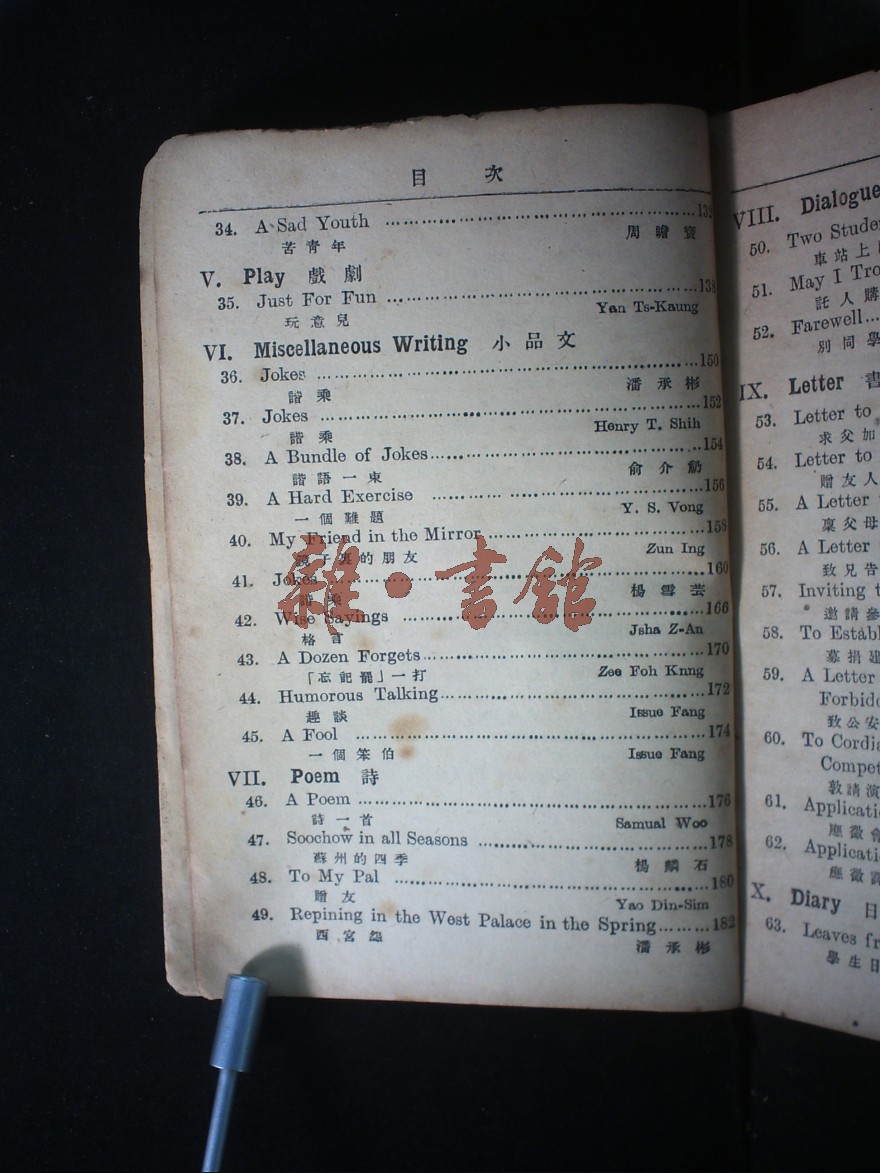 目 次
34. A Sad Youth ........ 132
苦青年 周瞻
V. Play 戲劇
35. Just For Fun ........ 138
玩意兒 Yan Ts-Kaung
VI. Miscellaneous Writing 小品文
36. Jokes ........ 150
諧乘 潘承彬
37. Jokes ........ 152
諧乘 Henry T. Shih
38. A Bundle of Jokes ........ 154
諧語一束 俞介
39. A Hard Exercise ........ 156
一個難題 Y. S. Vong
40. My Friend in the Mirror ........ 158
鏡子裏的朋友 Zun Ing
41. Jokes ........ 160
諧乘 楊雪芸
42. Wise Sayings ........ 166
格言 Jsha Z-An
43. A Dozen Forgets ........ 170
「忘記罷」一打 Zee Foh Knng
44. Humorous Talking ........ 172
趣談 Issue Fang
45. A Fool ........ 174
一個笨伯 Issue Fang
VII. Poem 詩
46. A Poem ........ 176
詩一首 Samual Woo
47. Soochow in all Seasons ........ 178
蘇州的四季 楊麟石
48. To My Pal ........ 180
贈友 Yao Din-Sim
49. Repining in the West Palace in the Spring ........ 182
西宮怨 潘承彬
雜·書館
VIII. Dialogue
50. Two Stude
車站上
51. May I Tro
託人購
52. Farewell...
別同學
IX. Letter 書
53. Letter to
求父加
54. Letter to
贈友人
55. A Letter
稟父母
56. A Letter
致兄告
57. Inviting t
邀請參
58. To Establ
募捐建
59. A Letter
Forbid
致公安
60. To Cordia
Compet
敦請演
61. Applicati
應徵會
62. Applicati
應徵
X. Diary 日
63. Leaves fr
學生日